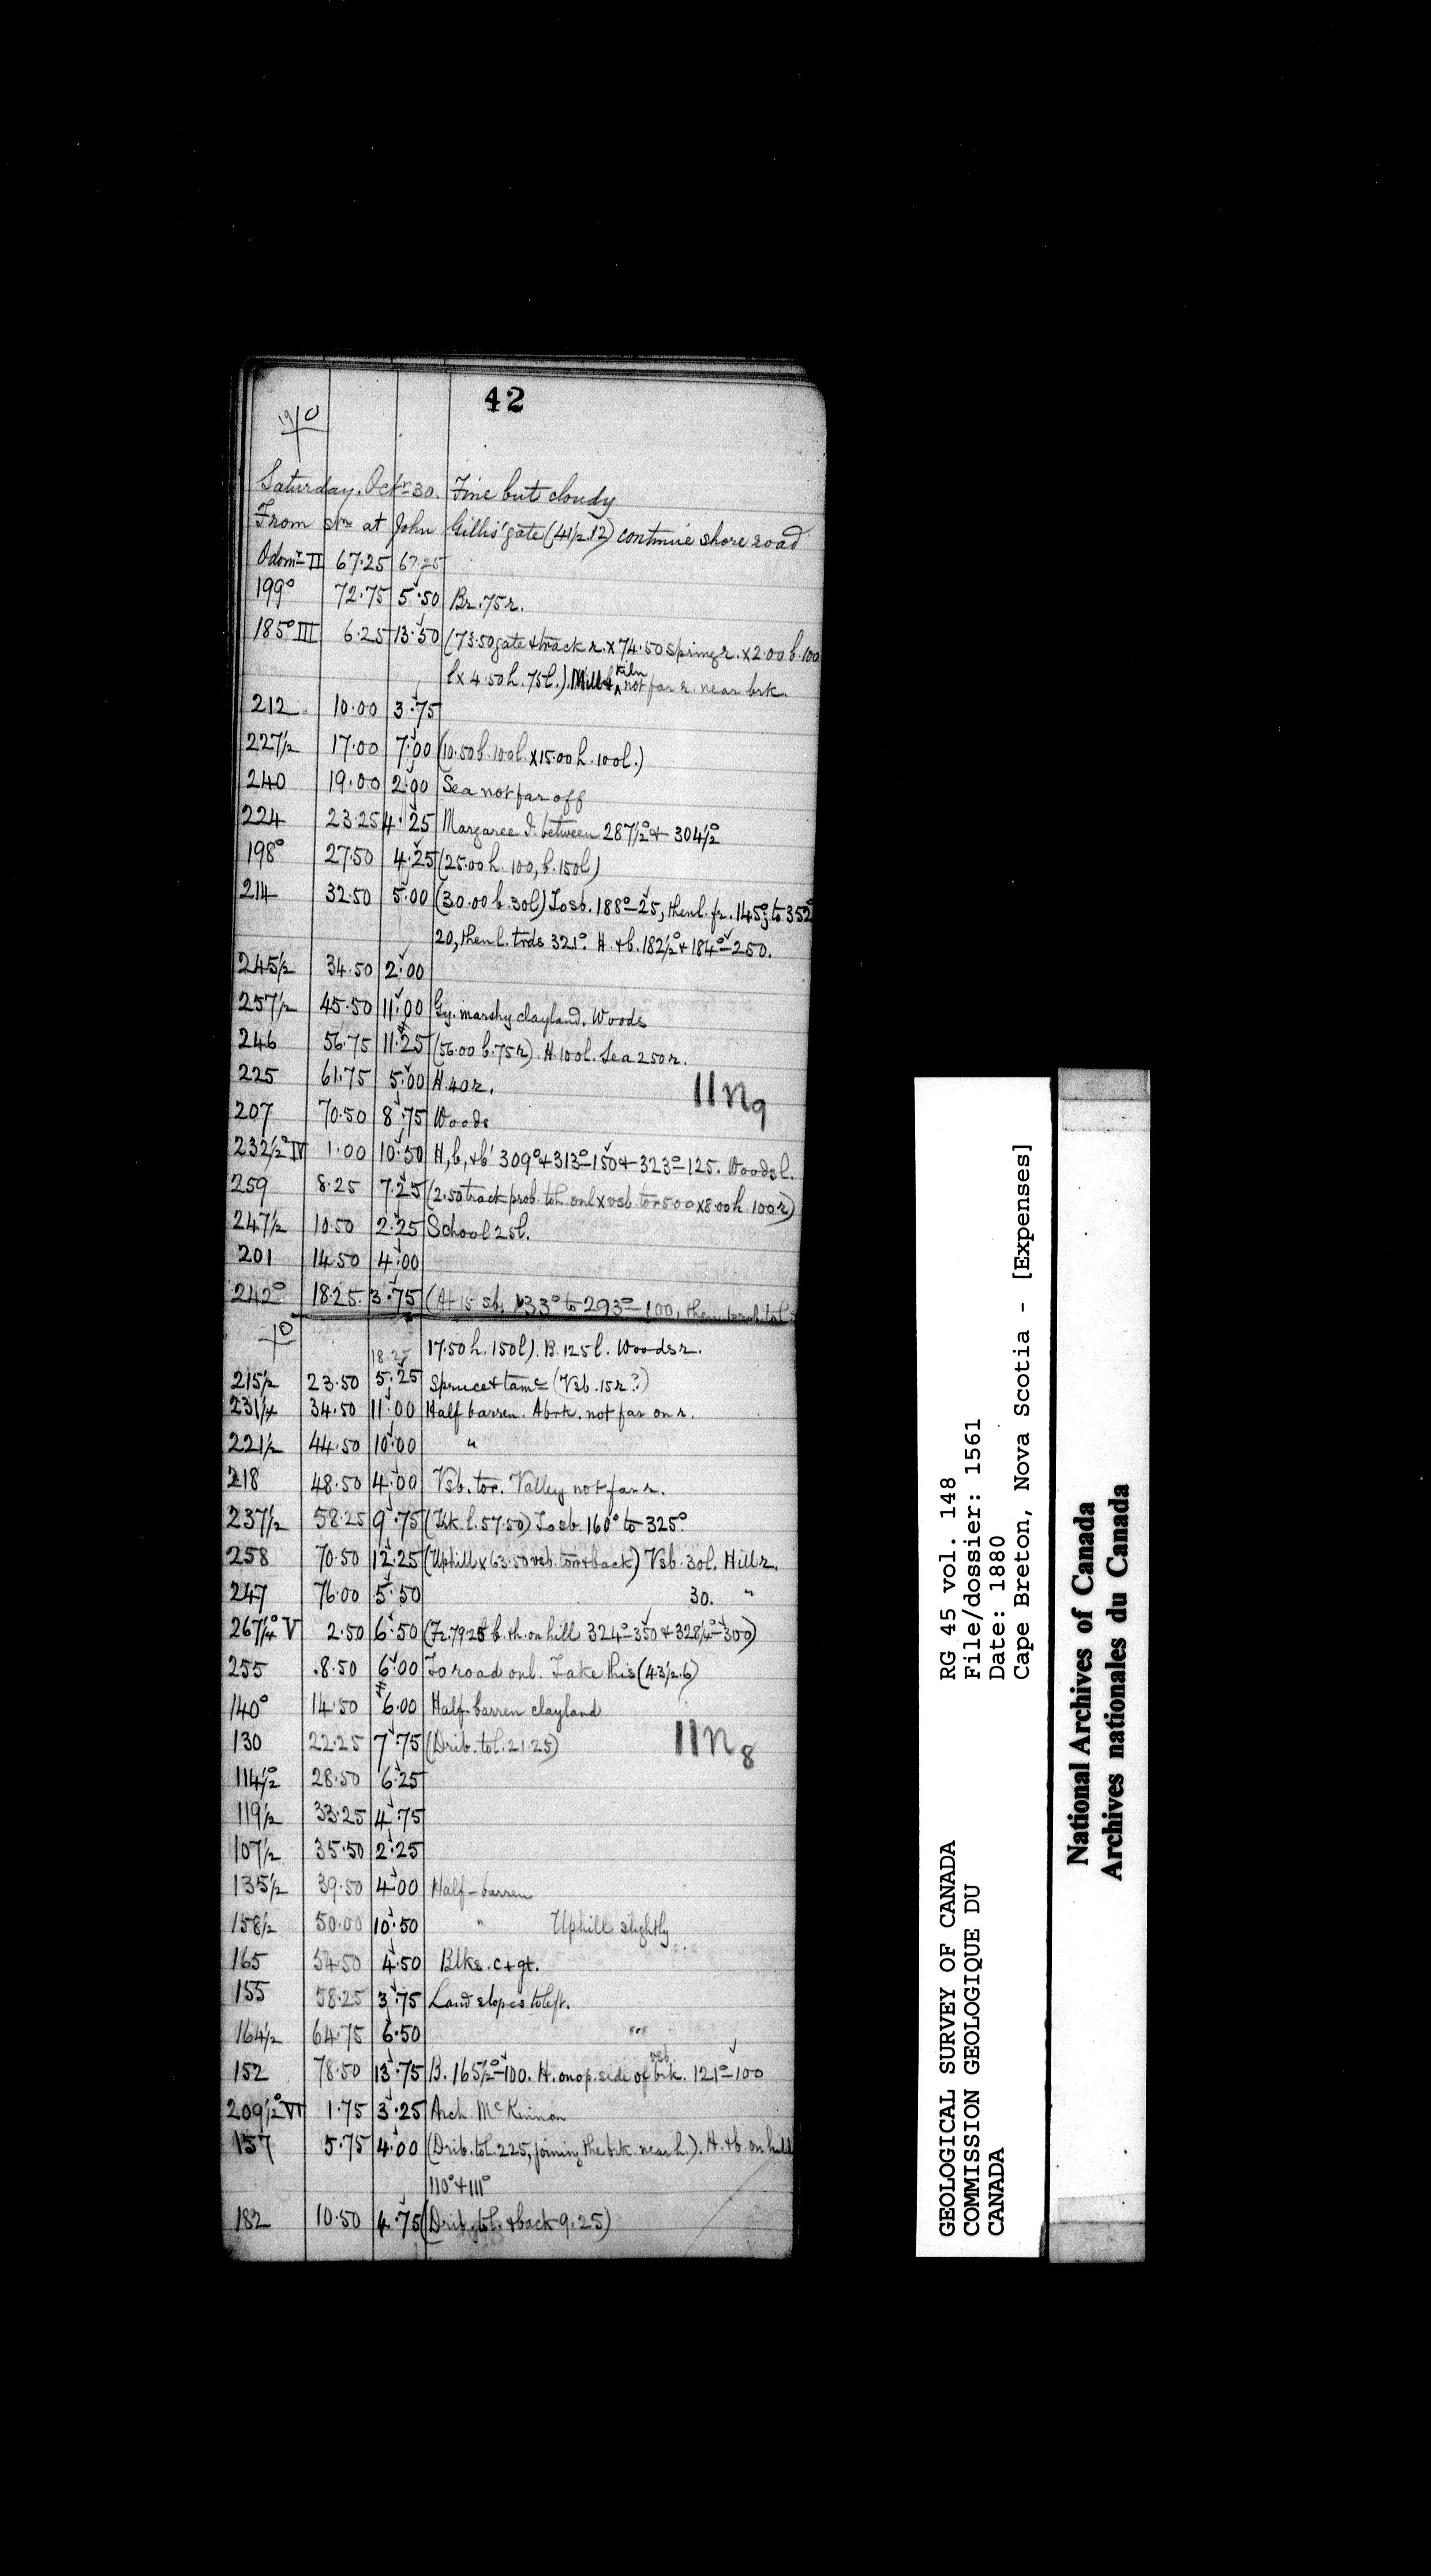 42
Saturday. Octr 30. Fine but cloudy
From stn at John Gillis' gate (41½.12) continue shore road
Odomr II 67.25 67.25
199° 72.75 5.50 Br. 75 r.
185° III 6.25 13.50 (73.50 gate & track r. x 74.50 spring r. x 2.00 b. 100
l x 4.50 h. 75 l.). Mill & kiln not far r. near brk.
212 10.00 3.75
227½ 17.00 7.00 (10.50 b. 100 l. x 15.00 h. 100 l.)
240 19.00 2.00 Sea not far off
224 23.25 4.25 Margaree I. between 287½° & 304½°
198° 27.50 4.25 (25.00 h. 100, b. 150 l)
214 32.50 5.00 (30.00 b. 30 l) To sb. 188° - 25, then l. fr. 145° to 352°
20, then l. trds 321°. H. & b. 182½° & 184° - 250.
245½ 34.50 2.00
257½ 45.50 11.00 Gy. marshy clayland. Woods
246 56.75 11.25 (56.00 b. 75 r). H. 100 l. Sea 250 r.
225 61.75 5.00 H. 40 r.
11 n 9
207 70.50 8.75 Woods
232½° IV 1.00 10.50 H, b, & b' 309° & 313° - 150 & 323° - 125. Woods l.
259 8.25 7.25 (2.50 track prob. to h. on l x vsb. to r 500 x 8.00 h. 100 r)
247½ 10.50 2.25 School 25 l.
201 14.50 4.00
242° 18.25 3.75 (At 15 sb. 133° to 293° - 100, then to l.
18.25 17.50 h. 150 l). B. 125 l. Woods r.
215½ 23.50 5.25 Spruce & tamc (Vsb. 15 r?)
231¼ 34.50 11.00 Half barren. A brk. not far on r.
221½ 44.50 10.00 "
218 48.50 4.00 Vsb. to r. Valley not far r.
237½ 58.25 9.75 (Trk l. 57.50) To sb 160° to 325°.
258 70.50 12.25 (Uphill x 63.50 vsb. to r & back) Vsb. 30 l. Hill r.
247 76.00 5.50 30. "
267¼° V 2.50 6.50 (Fr. 79.25 b. & h. on hill 324° - 350 & 328¼° - 300)
255 8.50 6.00 To road on l. Take this (43½.6)
140° 14.50 6.00 Half-barren clayland
130 22.25 7.75 (Drib. to l. 21.25)
11 n 8
114½° 28.50 6.25
119½ 33.25 4.75
107½ 35.50 2.25
135½ 39.50 4.00 Half-barren
158½ 50.00 10.50 " Uphill slightly
165 54.50 4.50 Blks. c & gt.
155 58.25 3.75 Land slopes to left.
164½ 64.75 6.50 "
152 78.50 13.75 B. 165½° - 100. H. on op. side of vsb brk. 121° - 100
209½° VI 1.75 3.25 Arch. McKinnon
157 5.75 4.00 (Drib. to l. 2.25, joining the brk. near h.). H. & b. on hill
110° & 111°
182 10.50 4.75 (Drib. to l. & back 9.25)
GEOLOGICAL SURVEY OF CANADA
COMMISSION GEOLOGIQUE DU
CANADA
RG 45 vol. 148
File/dossier: 1561
Date: 1880
Cape Breton, Nova Scotia - [Expenses]
National Archives of Canada
Archives nationales du Canada